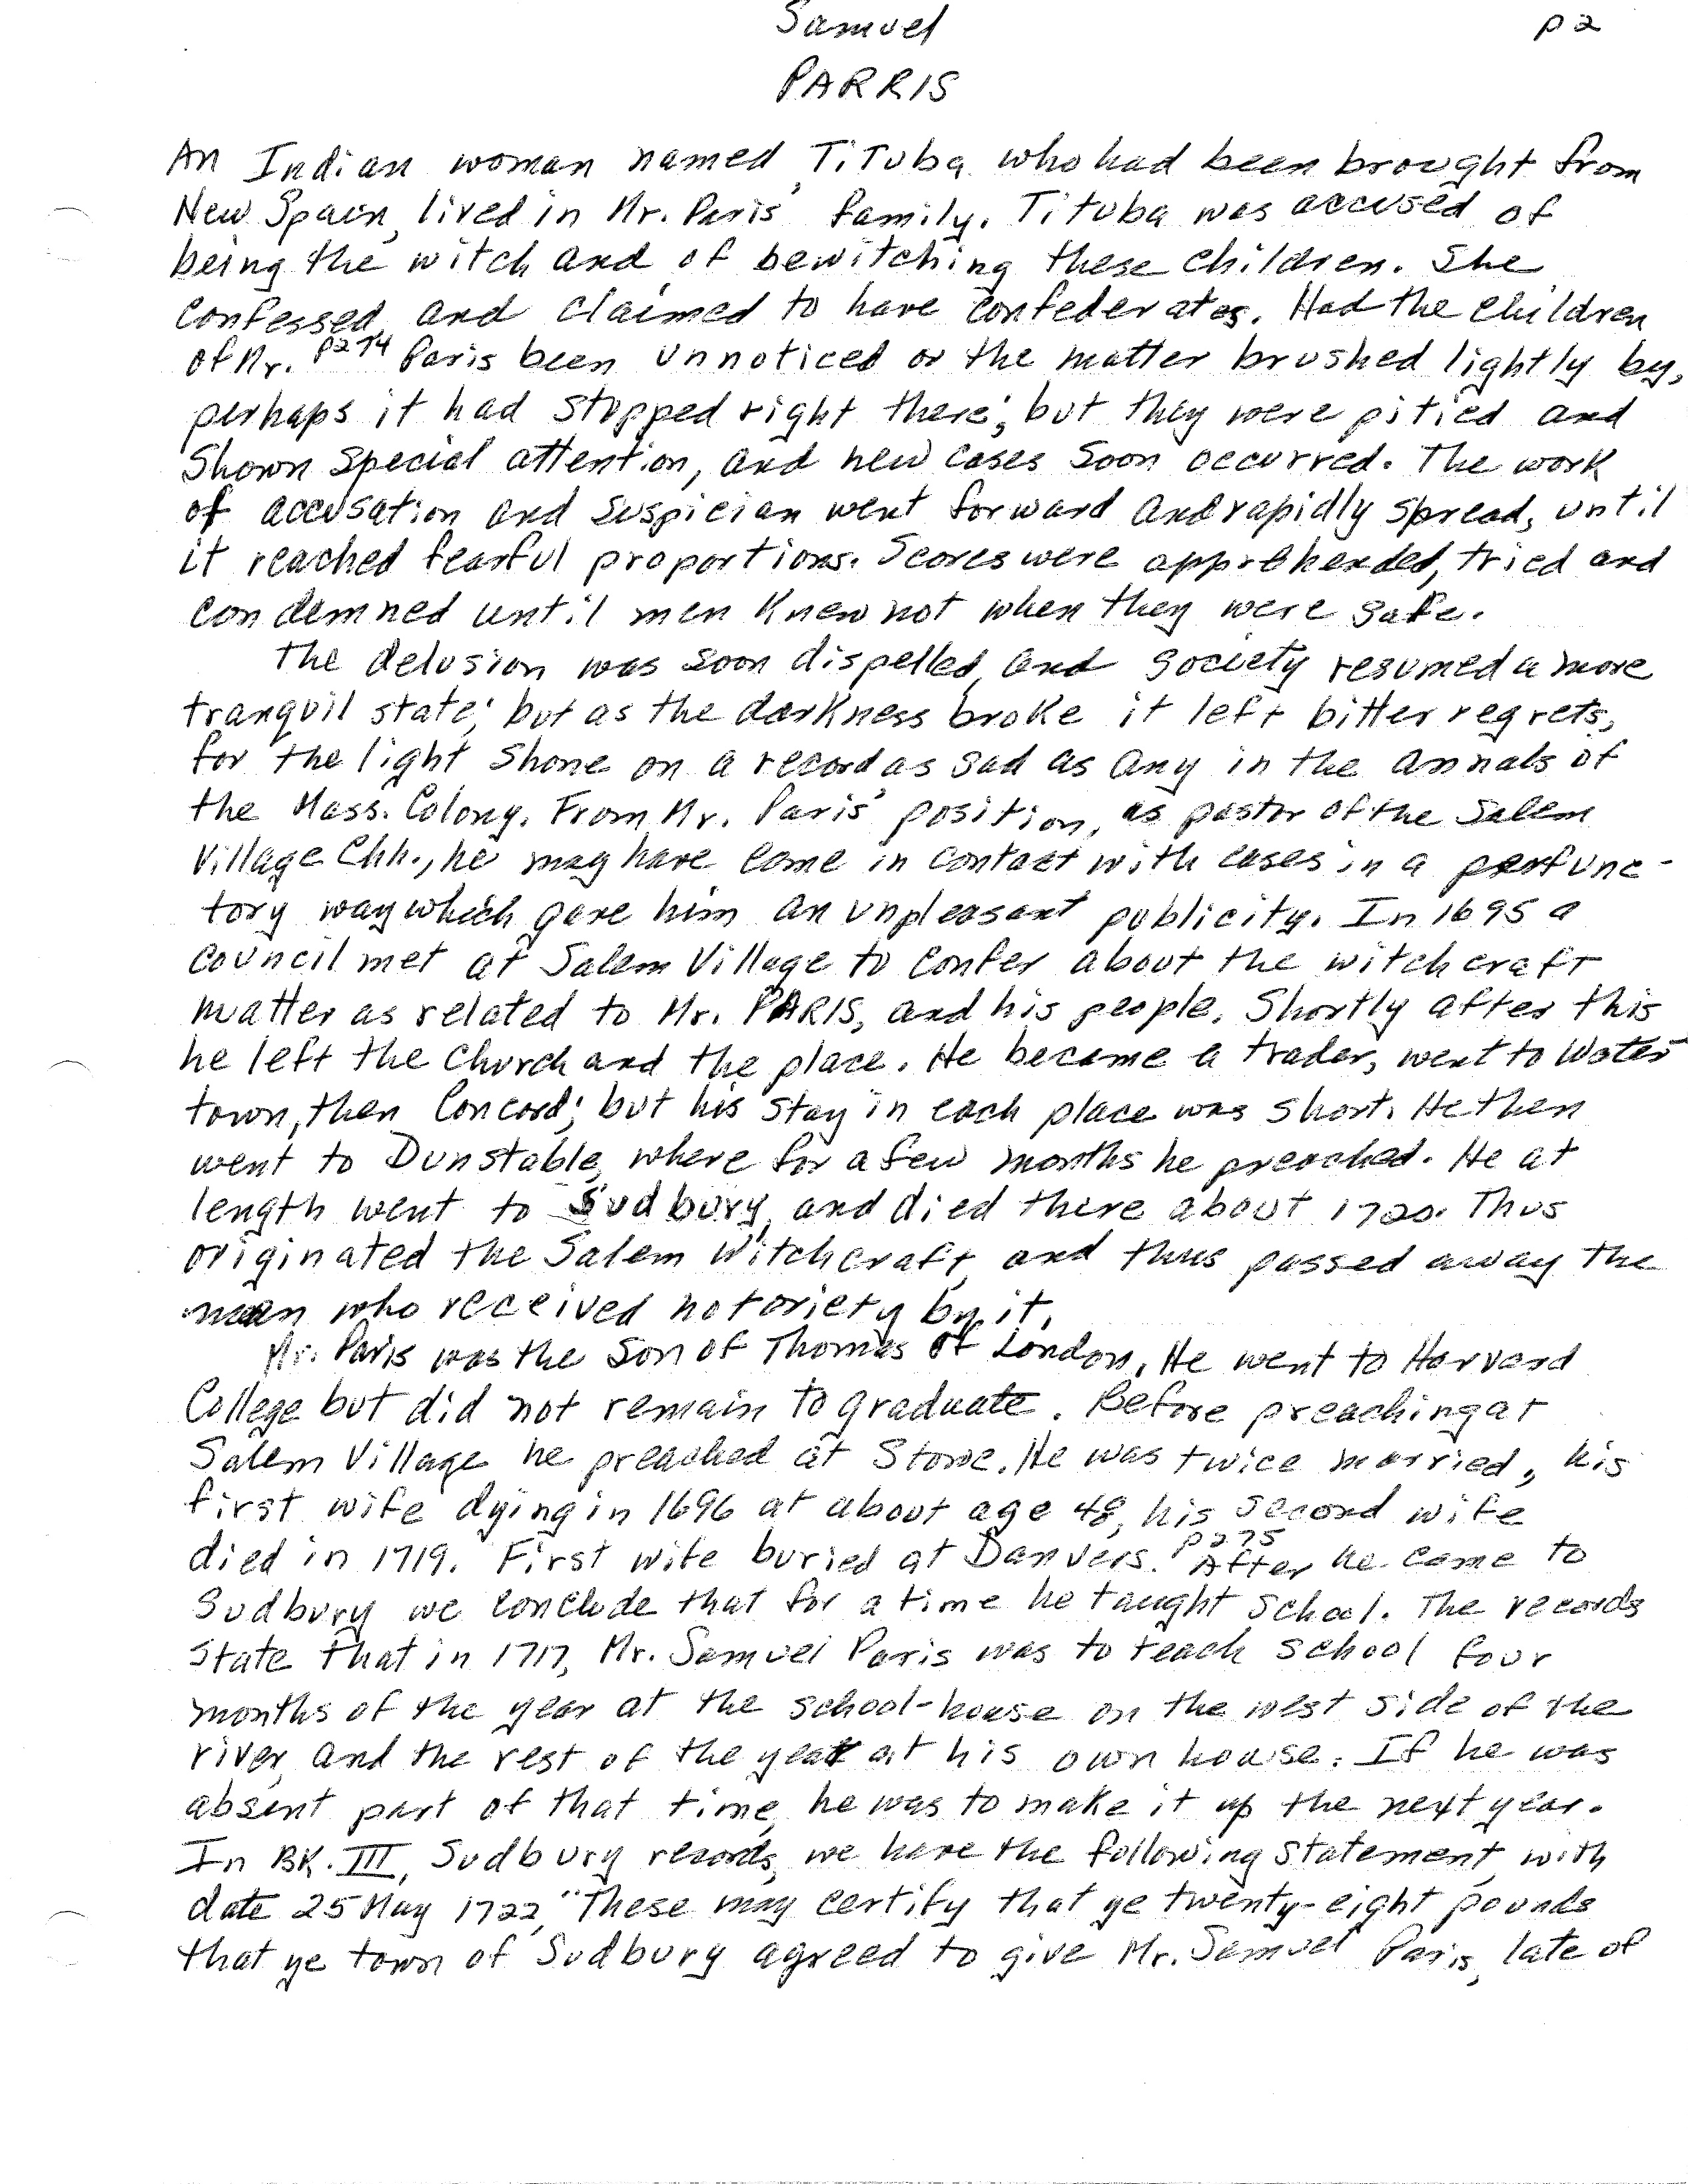 Samuel
p 2
PARRIS
An Indian woman named Tituba who had been brought from
New Spain, lived in Mr. Paris' family. Tituba was accused of
being the witch and of bewitching these children. She
confessed, and claimed to have confederates. Had the children
of Mr. p274 Paris been unnoticed or the matter brushed lightly by,
perhaps it had stopped right there; but they were pitied and
shown special attention, and new cases soon occurred. The work
of accusation and suspician went forward and rapidly spread, until
it reached fearful proportions. Scores were apprehended, tried and
condemned until men knew not when they were safe.
The delusion was soon dispelled, and society resumed a more
tranquil state; but as the darkness broke it left bitter regrets,
for the light shone on a record as sad as any in the annals of
the Mass. Colony. From Mr. Paris' position, as pastor of the Salem
Village Chh., he may have come in contact with cases in a perfunc-
tory way which gave him an unpleasant publicity. In 1695 a
council met at Salem Village to confer about the witchcraft
matter as related to Mr. PARIS, and his people. Shortly after this
he left the church and the place. He became a trader, went to Water
town, then Concord; but his stay in each place was short. He then
went to Dunstable, where for a few months he preached. He at
length went to Sudbury, and died there about 1720. Thus
originated the Salem Witchcraft, and thus passed away the
man who received notoriety by it.
Mr. Paris was the son of Thomas of London. He went to Harvard
College but did not remain to graduate. Before preaching at
Salem Village he preached at Stowe. He was twice married, his
first wife dying in 1696 at about age 48, his second wife
died in 1719. First wife buried at Danvers. p275 After he came to
Sudbury we conclude that for a time he taught school. The records
state that in 1717, Mr. Samuel Paris was to teach school four
months of the year at the school-house on the west side of the
river, and the rest of the year at his own house. If he was
absent part of that time, he was to make it up the next year.
In BK. III, Sudbury records, we have the following statement, with
date 25 May 1722, "These may certify that ye twenty-eight pounds
that ye town of Sudbury agreed to give Mr. Samuel Paris, late of